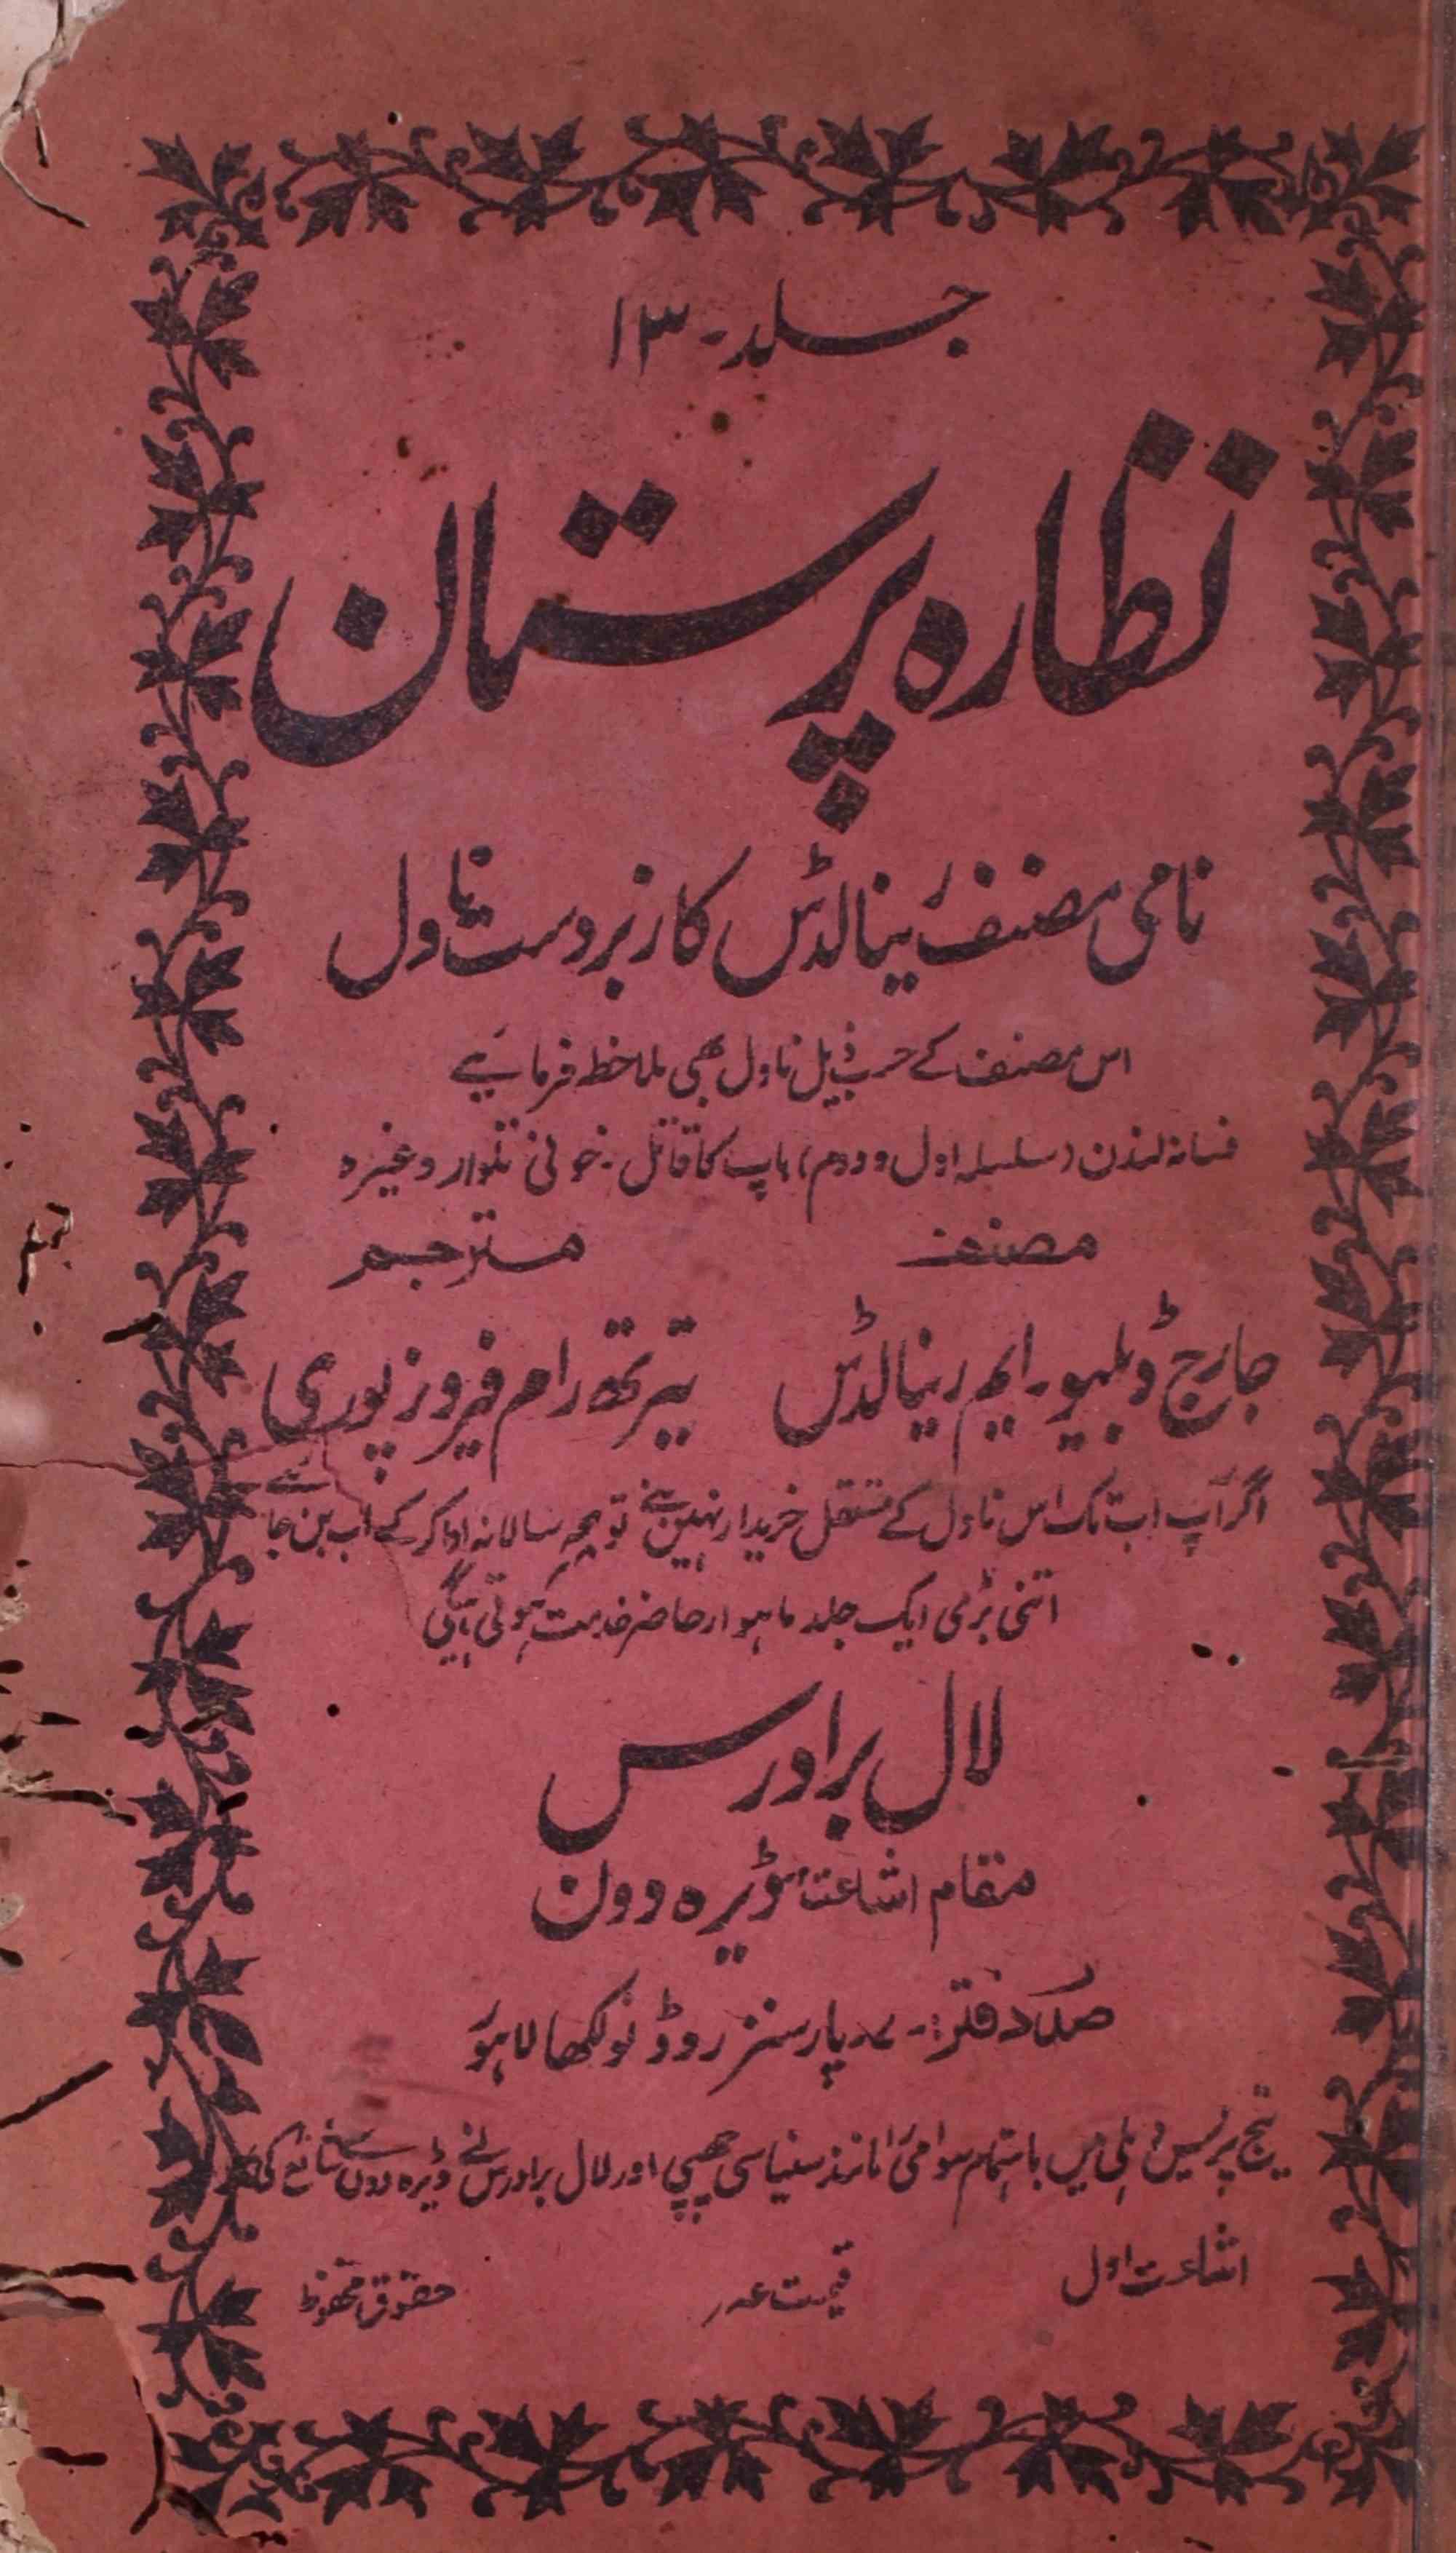 جلد - ۱۳
نظارہ پرستان
نامی مصنف رینالڈس کا زبردست ناول
اس مصنف کے حسب ذیل ناول بھی ملاحظہ فرمایئے
فسانہ لندن (سلسلہ اول و دوم) باپ کا قاتل - خونی تلوار وغیرہ
مصنف مترجم
جارج ڈبلیو - ایم رینالڈس تیرتھ رام فیروزپوری
اگر آپ اب تک اس ناول کے مستقل خریدار نہیں بنے تو سالانہ ادا کر کے اب بن جایئے
اتنی بڑی ایک جلد ماہوار حاضر خدمت ہوتی رہیگی
لال برادرس
مقام اشاعت ڈیرہ دون
صدر دفتر :- ۷ - پارسنز روڈ نولکھا لاہور
تیج پریس دہلی میں باہتمام سوامی رامانند سنیاسی چھپی اور لال برادرس نے ڈیرہ دون سے شائع کی
اشاعت اول قیمت عہ ر حقوق محفوظ